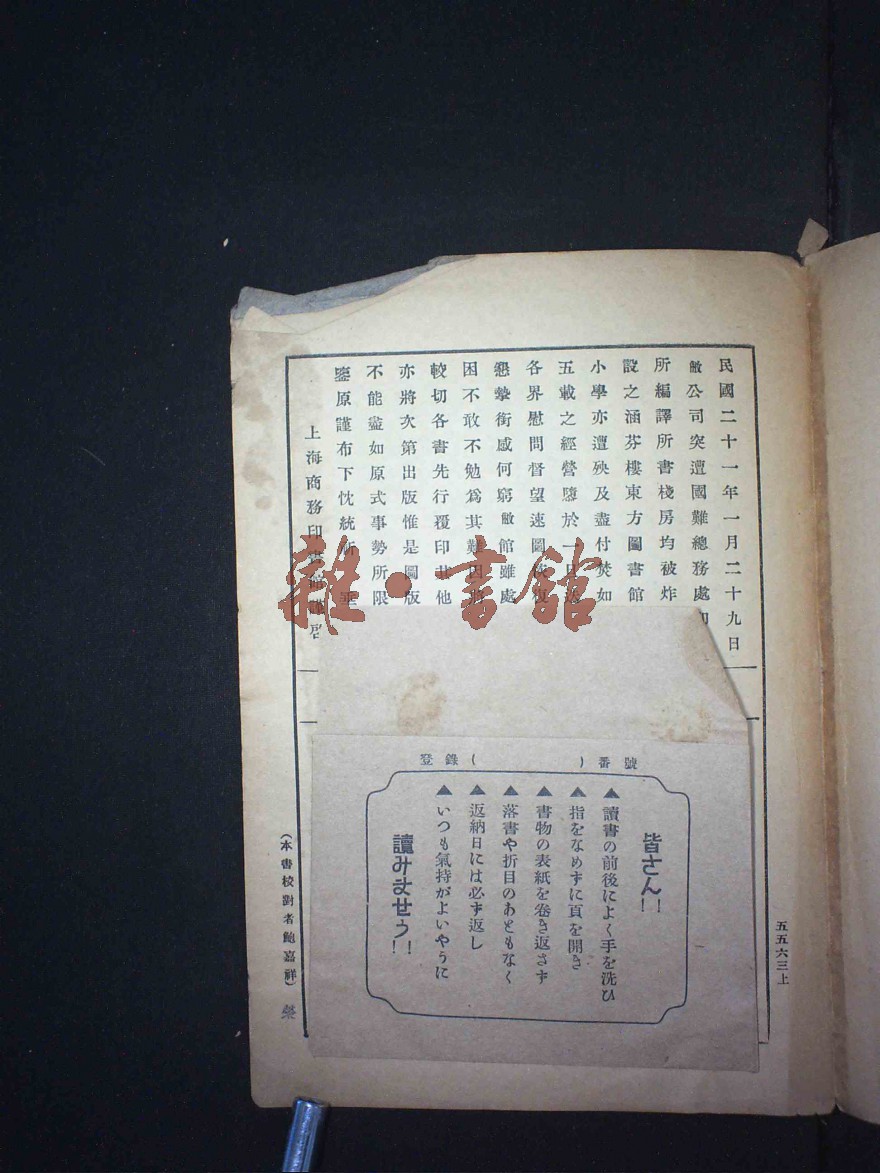 民國二十一年一月二十九日
敝公司突遭國難總務處印
所編譯所書棧房均被炸
設之涵芬樓東方圖書館
小學亦遭殃及盡付焚如
五載之經營隳於一旦迭
各界慰問督望速圖恢復
懇摯銜感何窮敝館雖處
困不敢不勉爲其難因將
較切各書先行覆印其他
亦將次第出版惟是圖版
不能盡如原式事勢所限
鑒原謹布下忱統祈 垂
上海商務印書館謹啓
五五六三上
(本書校對者鮑嘉祥)
登錄( )番號
皆さん!!
▲讀書の前後によく手を洗ひ
▲指をなめずに頁を開き
▲書物の表紙を卷き返さず
▲落書や折目のあともなく
▲返納日には必ず返し
▲いつも氣持がよいやうに
讀みませう!!
雜·書館